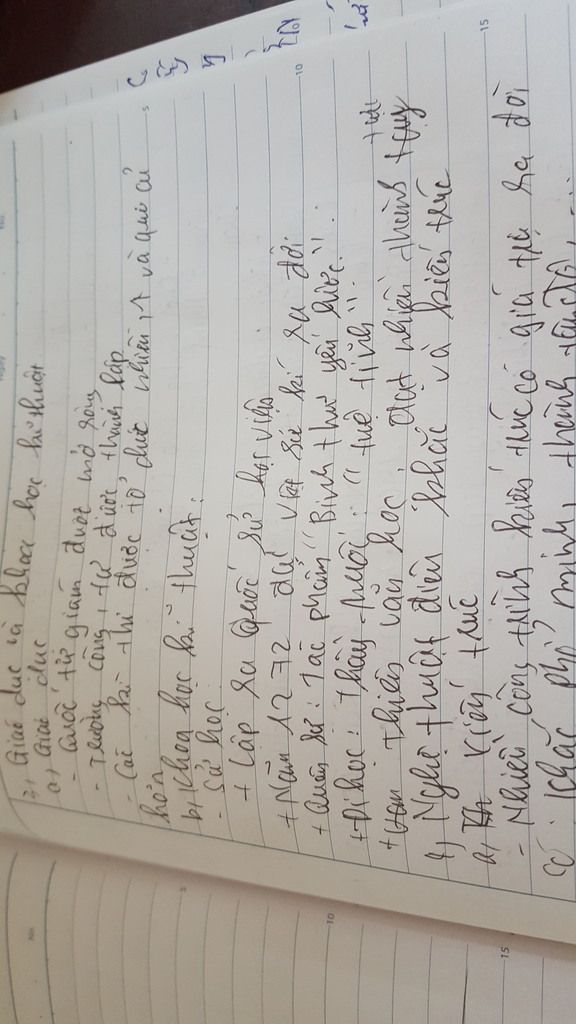 3, Giáo dục và khoa học kĩ thuật
a, Giáo dục
- Quốc tử giám được mở rộng
- Trường công, tư được thành lập
- Các kì thi được tổ chức nhiều và qui củ
hơn
b, Khoa học kĩ thuật:
- Sử học
+ Lập ra Quốc sử học viện
+ Năm 1272 đại việt sử kí ra đời
+ Quân sự: Tác phẩm "Binh thư yếu lược".
+ Y học: Thầy thuốc "tuệ tĩnh".
+ Thiên văn học, đạt nhiều thành tựu
4, Nghệ thuật điêu khắc và kiến trúc
a, Kiến trúc
- Nhiều công trình kiến trúc có giá trị ra đời
5
10
15
5
10
15